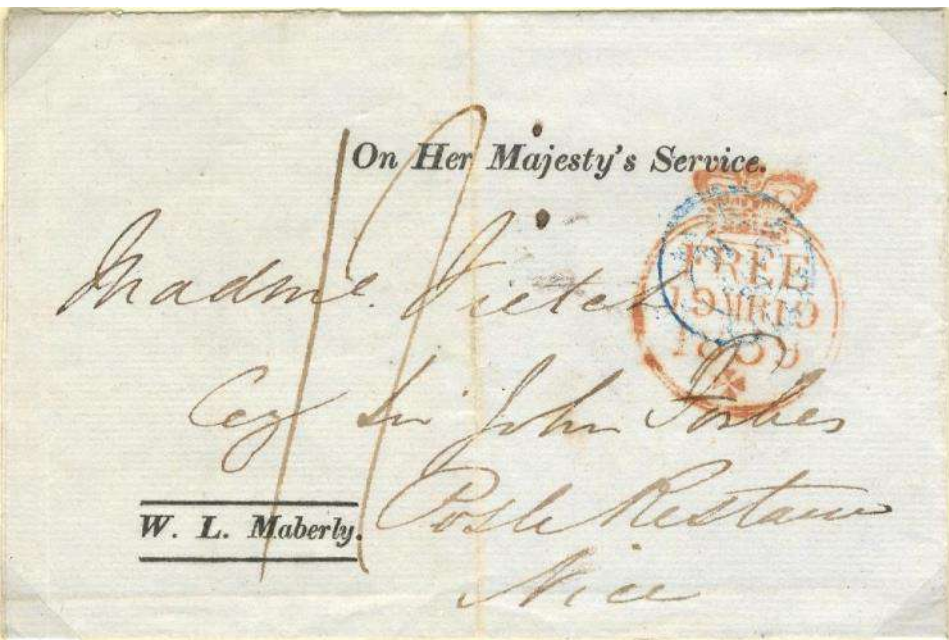 On Her Majesty's Service.
FREE
19 MR 19
Madme. Vietch
Sir John Forbes
Poste Restante
W. L. Maberly.
Nice